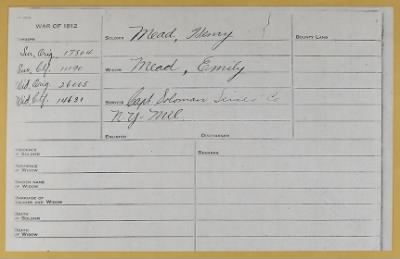 WAR OF 1812
NUMBERS
Sur. Orig. 17504
Sur. Ctf. 11190
Wid. Orig. 26105
Wid. Ctf. 14631
SOLDIER Mead, Henry
WIDOW Mead, Emily
SERVICE Capt Soloman Co
N.Y. Mil.
ENLISTED DISCHARGED
BOUNTY LAND
RESIDENCE OF SOLDIER
RESIDENCE OF WIDOW
MAIDEN NAME OF WIDOW
MARRIAGE OF SOLDIER AND WIDOW
DEATH OF SOLDIER
DEATH OF WIDOW
REMARKS